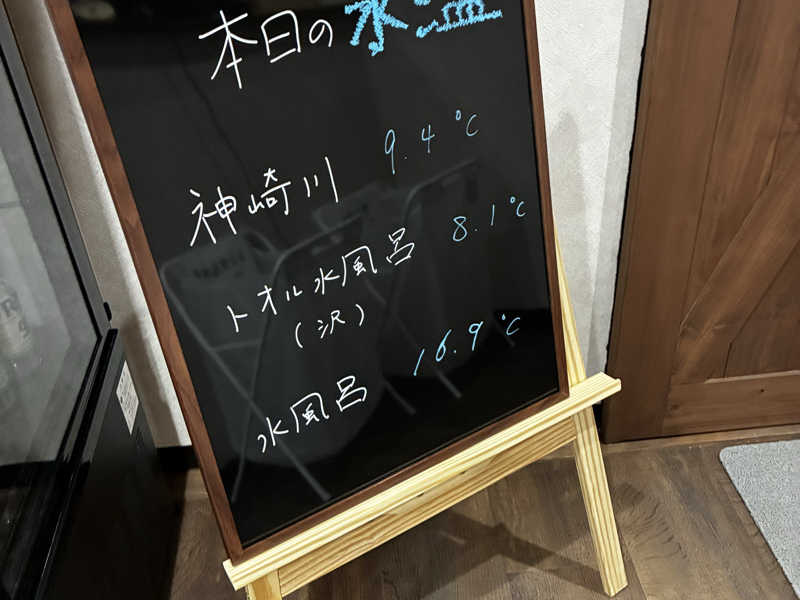 本日の水温
神崎川 9.4℃
トオル水風呂 8.1℃
(沢)
水風呂 16.9℃